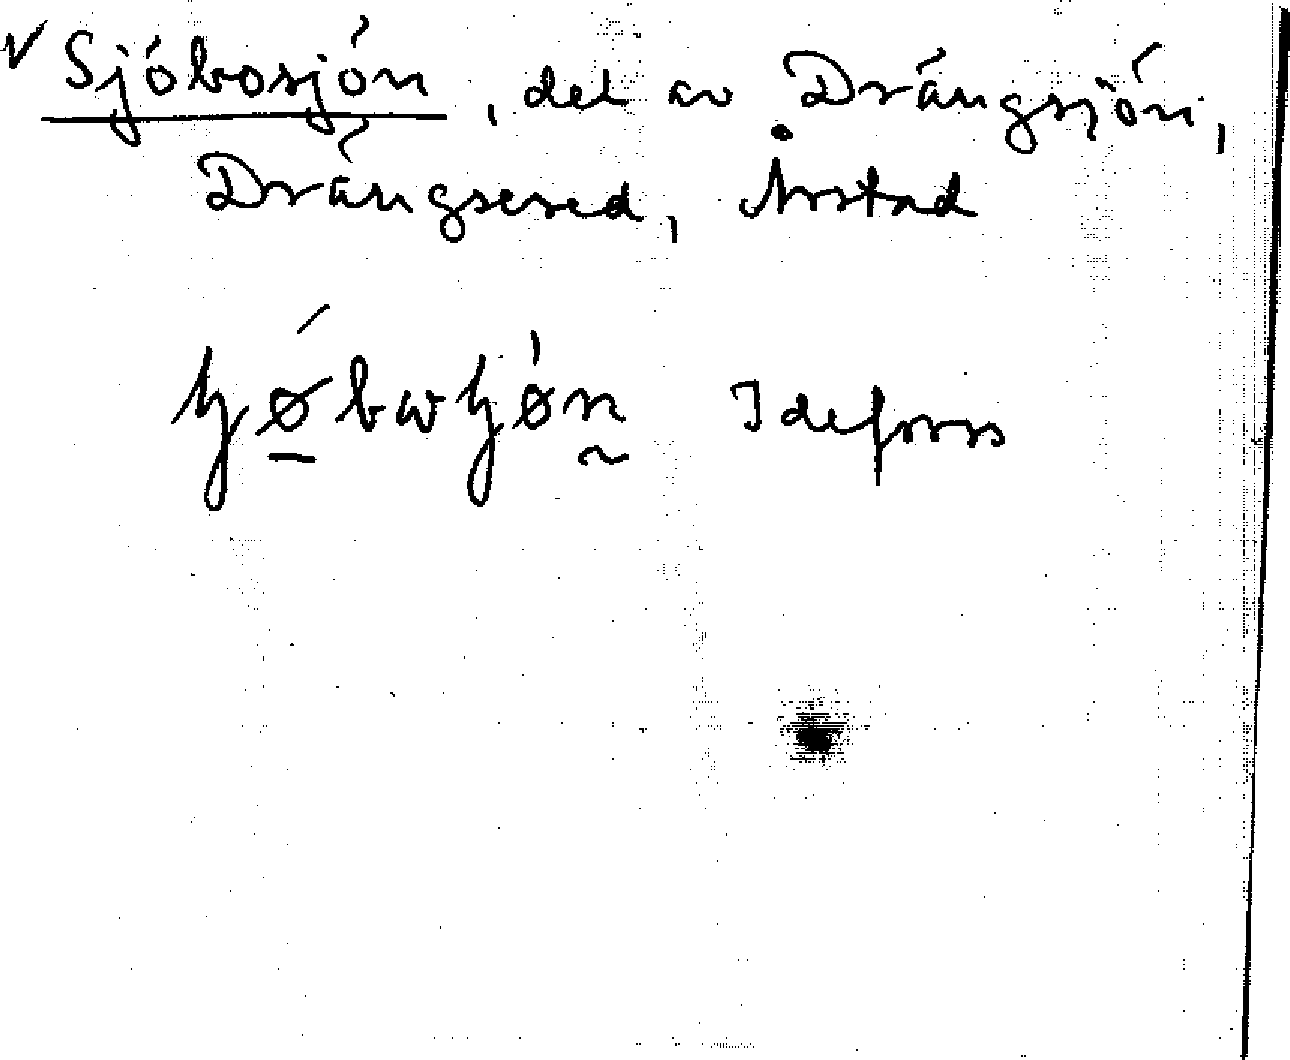 √ Sjöbosjön, del av Drängsjön,
Drängsered, Årstad
Ideforss